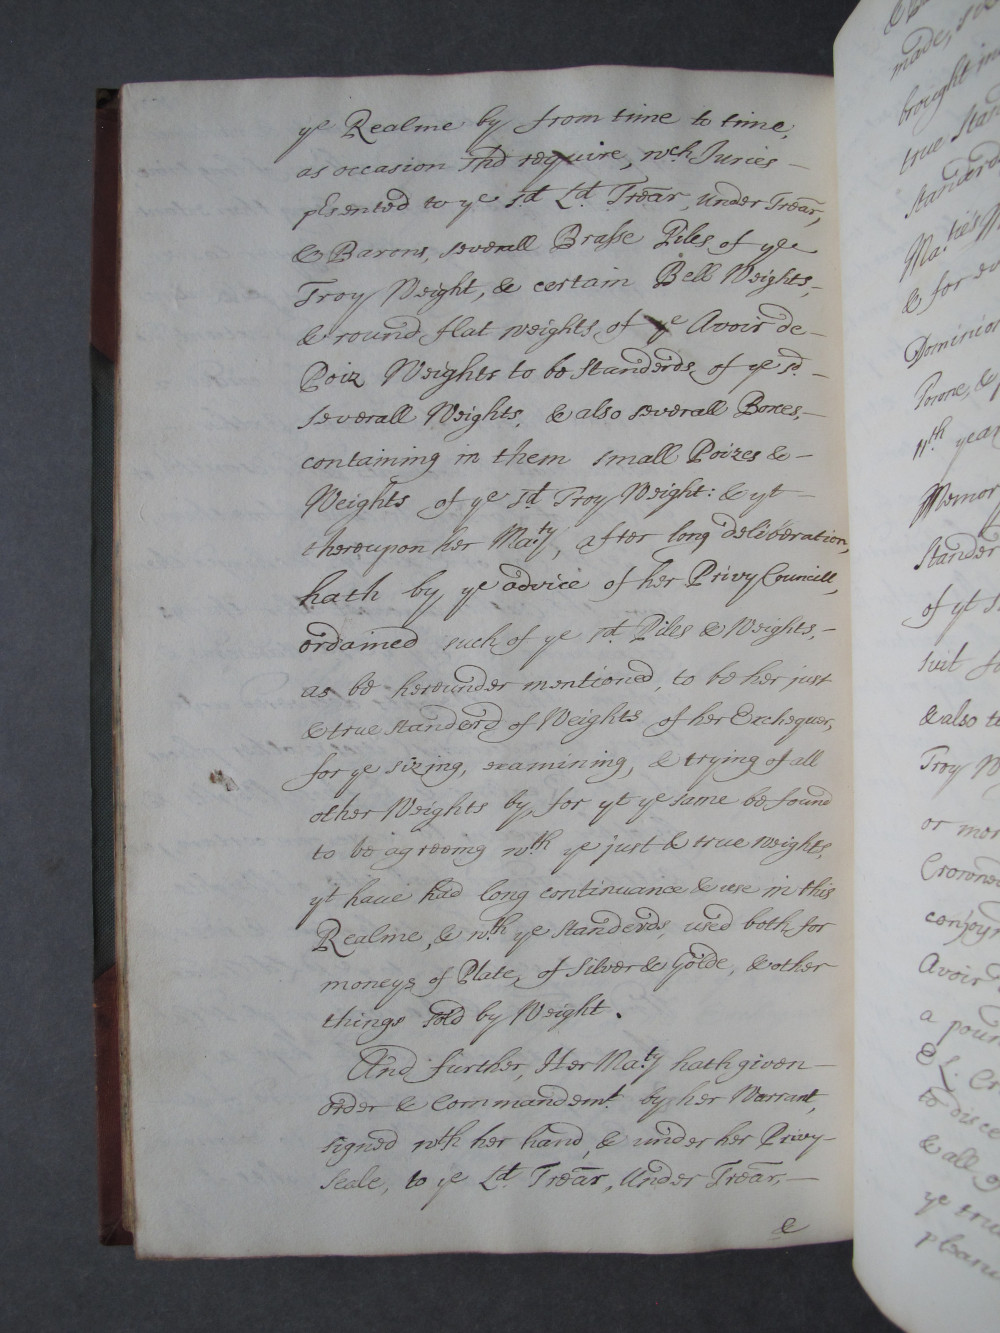 ye Realme by from time to time,
as occasion shd require, wch Juries
p'sented to ye sd Ld Trear, under Trear,
& Barons, severall Brasse Piles of ye
Troy Weight, & certain Bell Weights,
& round flat weights of ye Avoir de
Poiz Weights to be Standerds of ye sd
severall Weights, & also severall Boxes,
containing in them small Poizes &
Weights of ye sd Troy Weight: & yt
thereupon her Maty, after long deliberation,
hath by ye advice of her Privy Councill,
ordained such of ye sd Piles & Weights,
as be hereunder mentioned, to be her just
& true standerd of Weights of her Exchequer,
for ye sizing, examining, & trying of all
other Weights by, for yt ye same be found
to be agreeing wth ye just & true weights,
yt have had long continuance & use in this
Realme, & wth ye standerds, used both for
moneys of Plate, of Silver & Golde, & other
things sold by Weight.
And further, Her Maty hath given
order & Commandemt by her Warrant,
signed wth her hand, & under her Privy
Seale, to ye Ld Trear, Under Trear,
&
made,
brought in
true Stan
Standerds
Maties
& for
Dominion
11th year
Memor
Stander
of yt
suit
& also to
Troy W
or mor
Crowned
conjoyn
Avoir
a poun
to disce
& all
ye true